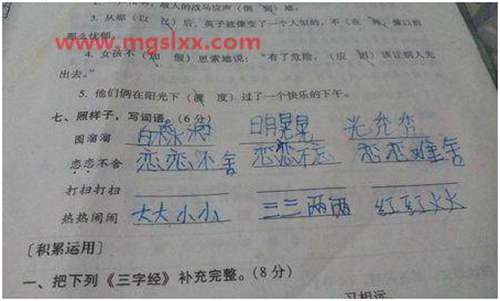 人的战马应声（倒
3. 从那（以 已）后，英子就像变了一个人似的，不（在 再）像以前
那么忧郁。
www.mgslxx.com
4. 女孩不（加 假）思索地说：“有了危险，（应 因）该让别人先
出去。”
5. 他们俩在阳光下（渡 度）过了一个快乐的下午。
七、照样子，写词语。（6分）
圆溜溜 白 明晃晃 光秃秃
恋恋不舍 恋恋不舍 恋恋不忘 恋恋难舍
打扫打扫
热热闹闹 大大小小 三三两两 红红火火
〔积累运用〕
一、把下列《三字经》补充完整。（8分）
习相远